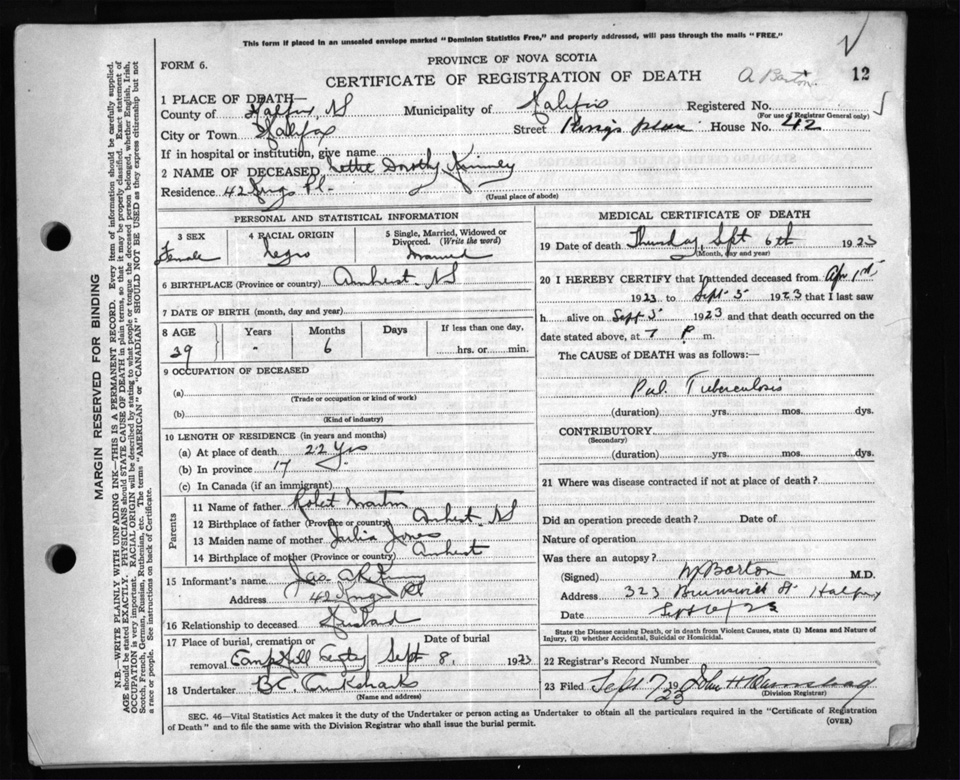 This form if placed in an unsealed envelope marked "Dominion Statistics Free," and properly addressed, will pass through the mails "FREE."
FORM 6.
PROVINCE OF NOVA SCOTIA
CERTIFICATE OF REGISTRATION OF DEATH
A Barton
12
1 PLACE OF DEATH—
County of Halifax, NS Municipality of Halifax Registered No.
(For use of Registrar General only)
City or Town Halifax Street Kings Place House No. 42
If in hospital or institution, give name
2 NAME OF DECEASED Dorothy Kinney
Residence 42 Kings Pl.
(Usual place of abode)
PERSONAL AND STATISTICAL INFORMATION
3 SEX
Female
4 RACIAL ORIGIN
Negro
5 Single, Married, Widowed or Divorced. (Write the word)
Married
6 BIRTHPLACE (Province or country) Amherst. NS
7 DATE OF BIRTH (month, day and year)
8 AGE Years Months Days If less than one day,
29 - 6 hrs. or min.
9 OCCUPATION OF DECEASED
(a)
(Trade or occupation or kind of work)
(b)
(Kind of industry)
10 LENGTH OF RESIDENCE (in years and months)
(a) At place of death 22 Yrs
(b) In province 17
(c) In Canada (if an immigrant)
Parents
11 Name of father Robert Martin
12 Birthplace of father (Province or country) Amherst. NS
13 Maiden name of mother Julia Jones
14 Birthplace of mother (Province or country) Amherst
15 Informant's name Jas
Address 42 Kings Pl
16 Relationship to deceased Husband
17 Place of burial, cremation or removal Date of burial
Sept 8, 1923
18 Undertaker
(Name and address)
MEDICAL CERTIFICATE OF DEATH
19 Date of death Thursday, Sept 6th 1923
(Month, day and year)
20 I HEREBY CERTIFY that I attended deceased from Apr 1st
1923 to Sept 5 1923 that I last saw
h alive on Sept 5 1923 and that death occurred on the
date stated above, at 7 P. m.
The CAUSE of DEATH was as follows:
Pul. Tuberculosis
(duration) yrs. mos. dys.
CONTRIBUTORY
(Secondary)
(duration) yrs. mos. dys.
21 Where was disease contracted if not at place of death?
Did an operation precede death? Date of
Nature of operation
Was there an autopsy?
(Signed) Barton M.D.
Address 323 Brunswick St. Halifax
Date Sept 6/23
State the Disease causing Death, or in death from Violent Causes, state (1) Means and Nature of
Injury, (2) whether Accidental, Suicidal or Homicidal.
22 Registrar's Record Number
23 Filed Sept 7 1923 John H
(Division Registrar)
SEC. 46—Vital Statistics Act makes it the duty of the Undertaker or person acting as Undertaker to obtain all the particulars required in the "Certificate of Registration
of Death" and to file the same with the Division Registrar who shall issue the burial permit.
(OVER)
MARGIN RESERVED FOR BINDING
N.B.—WRITE PLAINLY WITH UNFADING INK—THIS IS A PERMANENT RECORD. Every item of information should be carefully supplied.
AGE should be stated EXACTLY. PHYSICIANS should STATE CAUSE OF DEATH in plain terms, so that it may be properly classified. Exact statement of
OCCUPATION is very important. RACIAL ORIGIN will be described by stating to what people or tongue the deceased person belonged, whether English, Irish,
Scotch, French, German, Russian, Ruthenian, etc. The terms "AMERICAN" or "CANADIAN" SHOULD NOT BE USED as they express citizenship but not
a race or people. See instructions on back of Certificate.